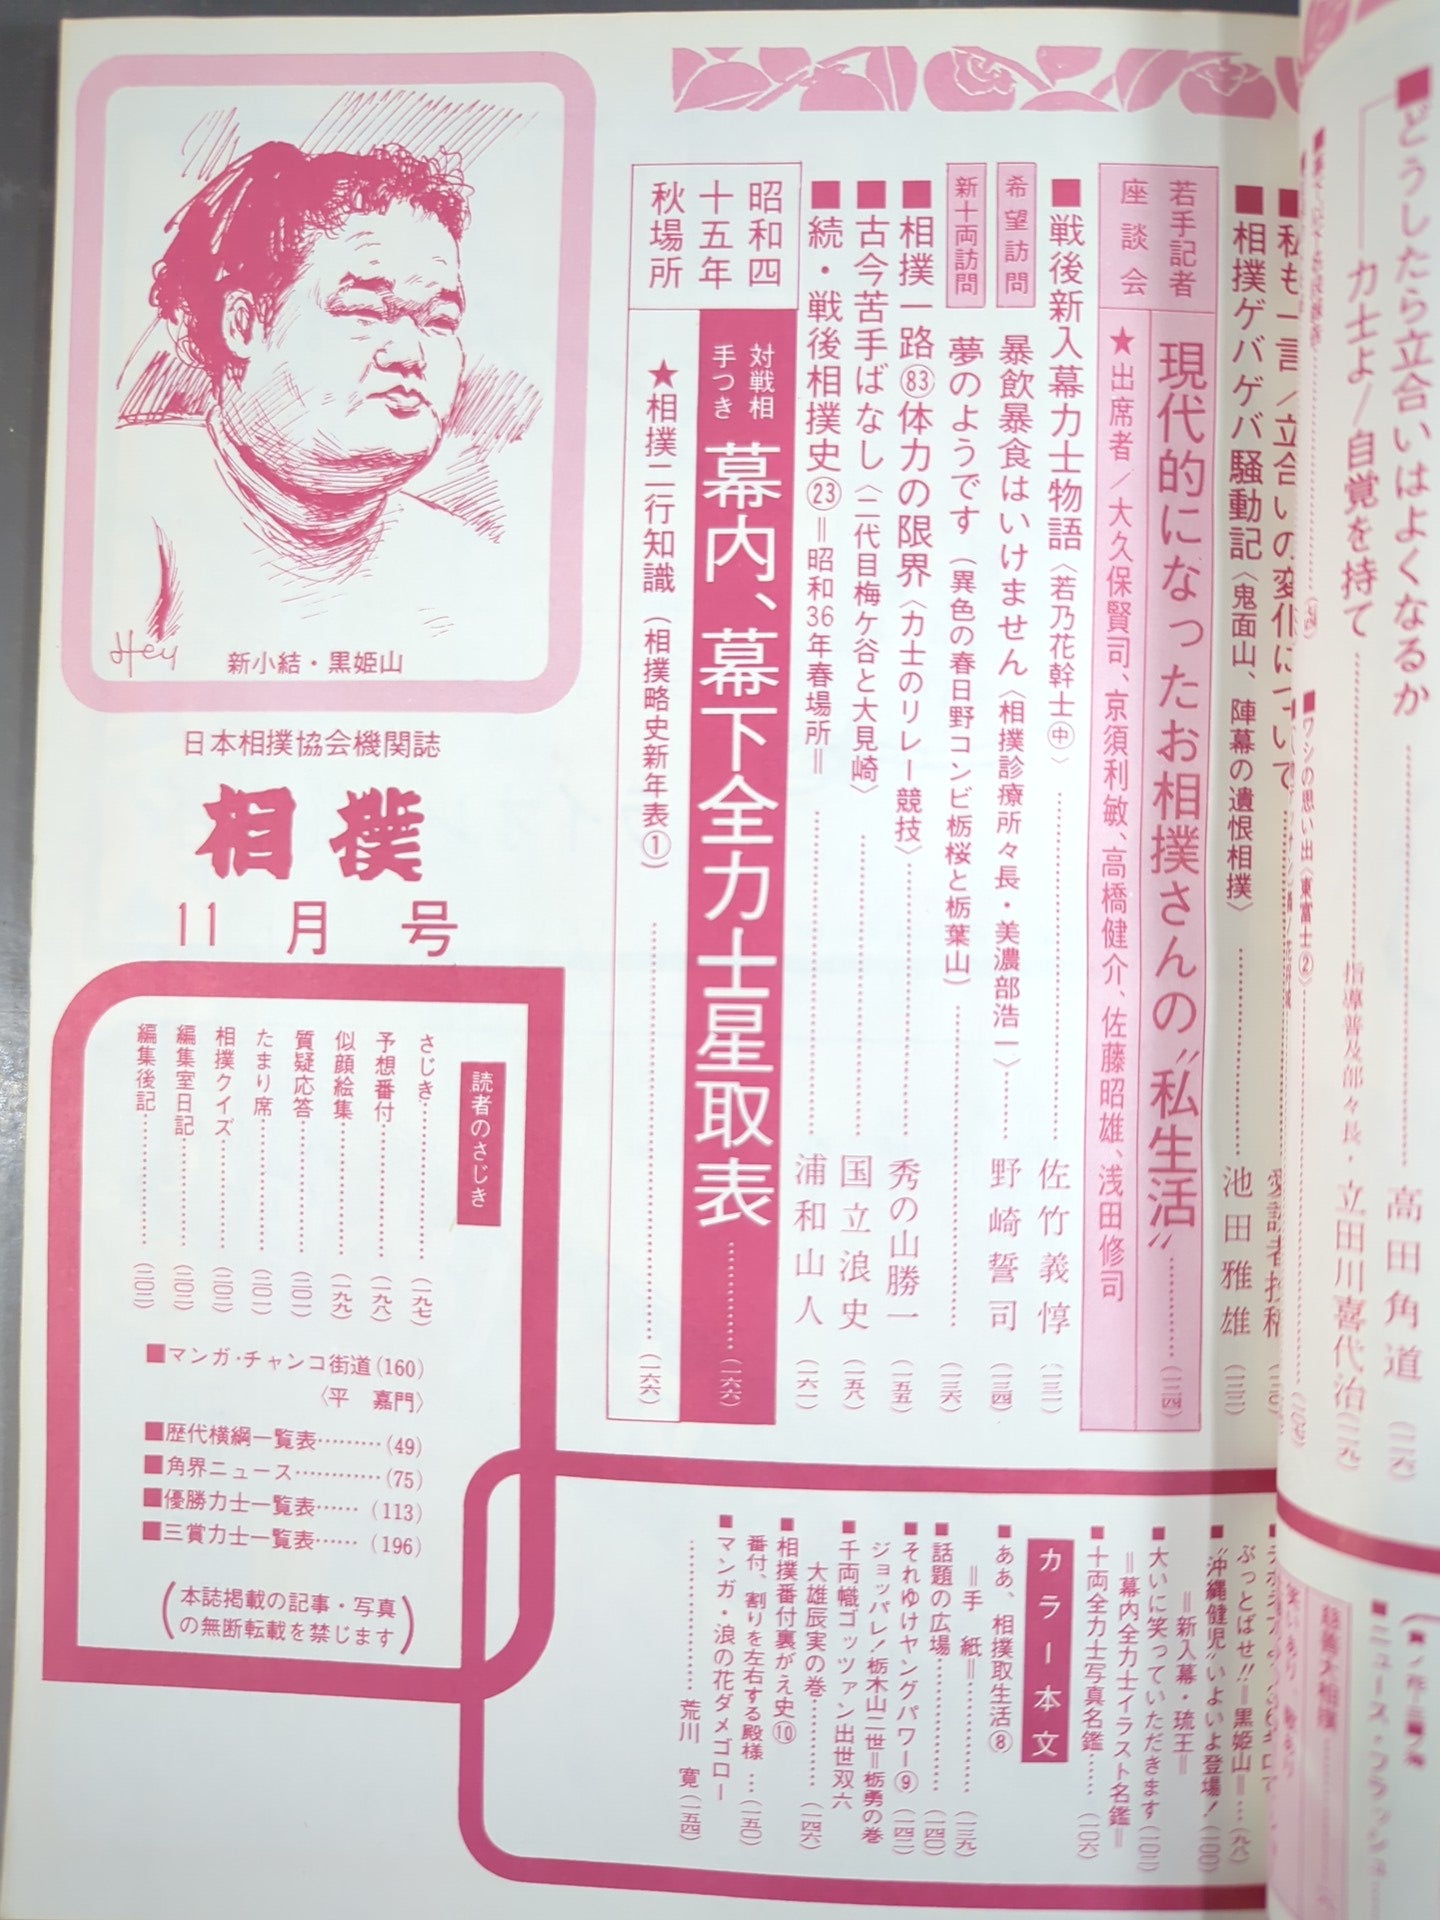 ■どうしたら立合いはよくなるか
高田角道
力士よ／自覚を持て
指導普及部々長・立田川喜代治
■ワシの思い出〈東富士②〉
■私も一言／立合いの変化について
■相撲ゲバゲバ騒動記〈鬼面山、陣幕の遺恨相撲〉
池田雅雄
若手記者
座談会
現代的になったお相撲さんの〝私生活〟
(一二四)
★出席者／大久保賢司、京須利敏、高橋健介、佐藤昭雄、浅田修司
■戦後新入幕力士物語〈若乃花幹士㊥〉
佐竹義惇
(一三一)
希望訪問
暴飲暴食はいけません〈相撲診療所々長・美濃部浩一〉
野崎誓司
(一三四)
新十両訪問
夢のようです(異色の春日野コンビ栃桜と栃葉山)
(一三六)
■相撲一路83体力の限界〈力士のリレー競技〉
秀の山勝一
(一五五)
■古今苦手ばなし〈二代目梅ケ谷と大見崎〉
国立浪史
(一五八)
■続・戦後相撲史㉓＝昭和36年春場所＝
浦和山人
(一六一)
昭和四
十五年
秋場所
対戦相
手つき
幕内、幕下全力士星取表
(一六六)
★相撲二行知識(相撲略史新年表①)
(一六六)
Hey
新小結・黒姫山
日本相撲協会機関誌
相撲
11月号
読者のさじき
さじき(一九七)
予想番付(一九八)
似顔絵集(一九九)
質疑応答(二〇一)
たまり席(二〇一)
相撲クイズ(二〇二)
編集室日記(二〇二)
編集後記(二〇二)
■マンガ・チャンコ街道(160)
〈平　嘉門〉
■歴代横綱一覧表………(49)
■角界ニュース…………(75)
■優勝力士一覧表……(113)
■三賞力士一覧表……(196)
(本誌掲載の記事・写真
の無断転載を禁じます)
ぶっとばせ!!＝黒姫山＝…(九八)
■〝沖縄健児〟いよいよ登場！
＝新入幕・琉王＝(一〇〇)
■大いに笑っていただきます
＝幕内全力士イラスト名鑑＝(一〇二)
■十両全力士写真名鑑……(一〇六)
カラー本文
■ああ、相撲取生活⑧
＝手　紙＝(一三九)
■話題の広場(一四〇)
■それゆけヤングパワー⑨
ジョッパレ！栃木山二世＝栃勇の巻(一四二)
■千両幟ゴッツァン出世双六
大雄辰実の巻(一四六)
■相撲番付裏がえ史⑩
番付、割りを左右する殿様…(一五〇)
■マンガ・浪の花ダメゴロー
荒川　寛(一五四)
■ニュース・フラッシュ